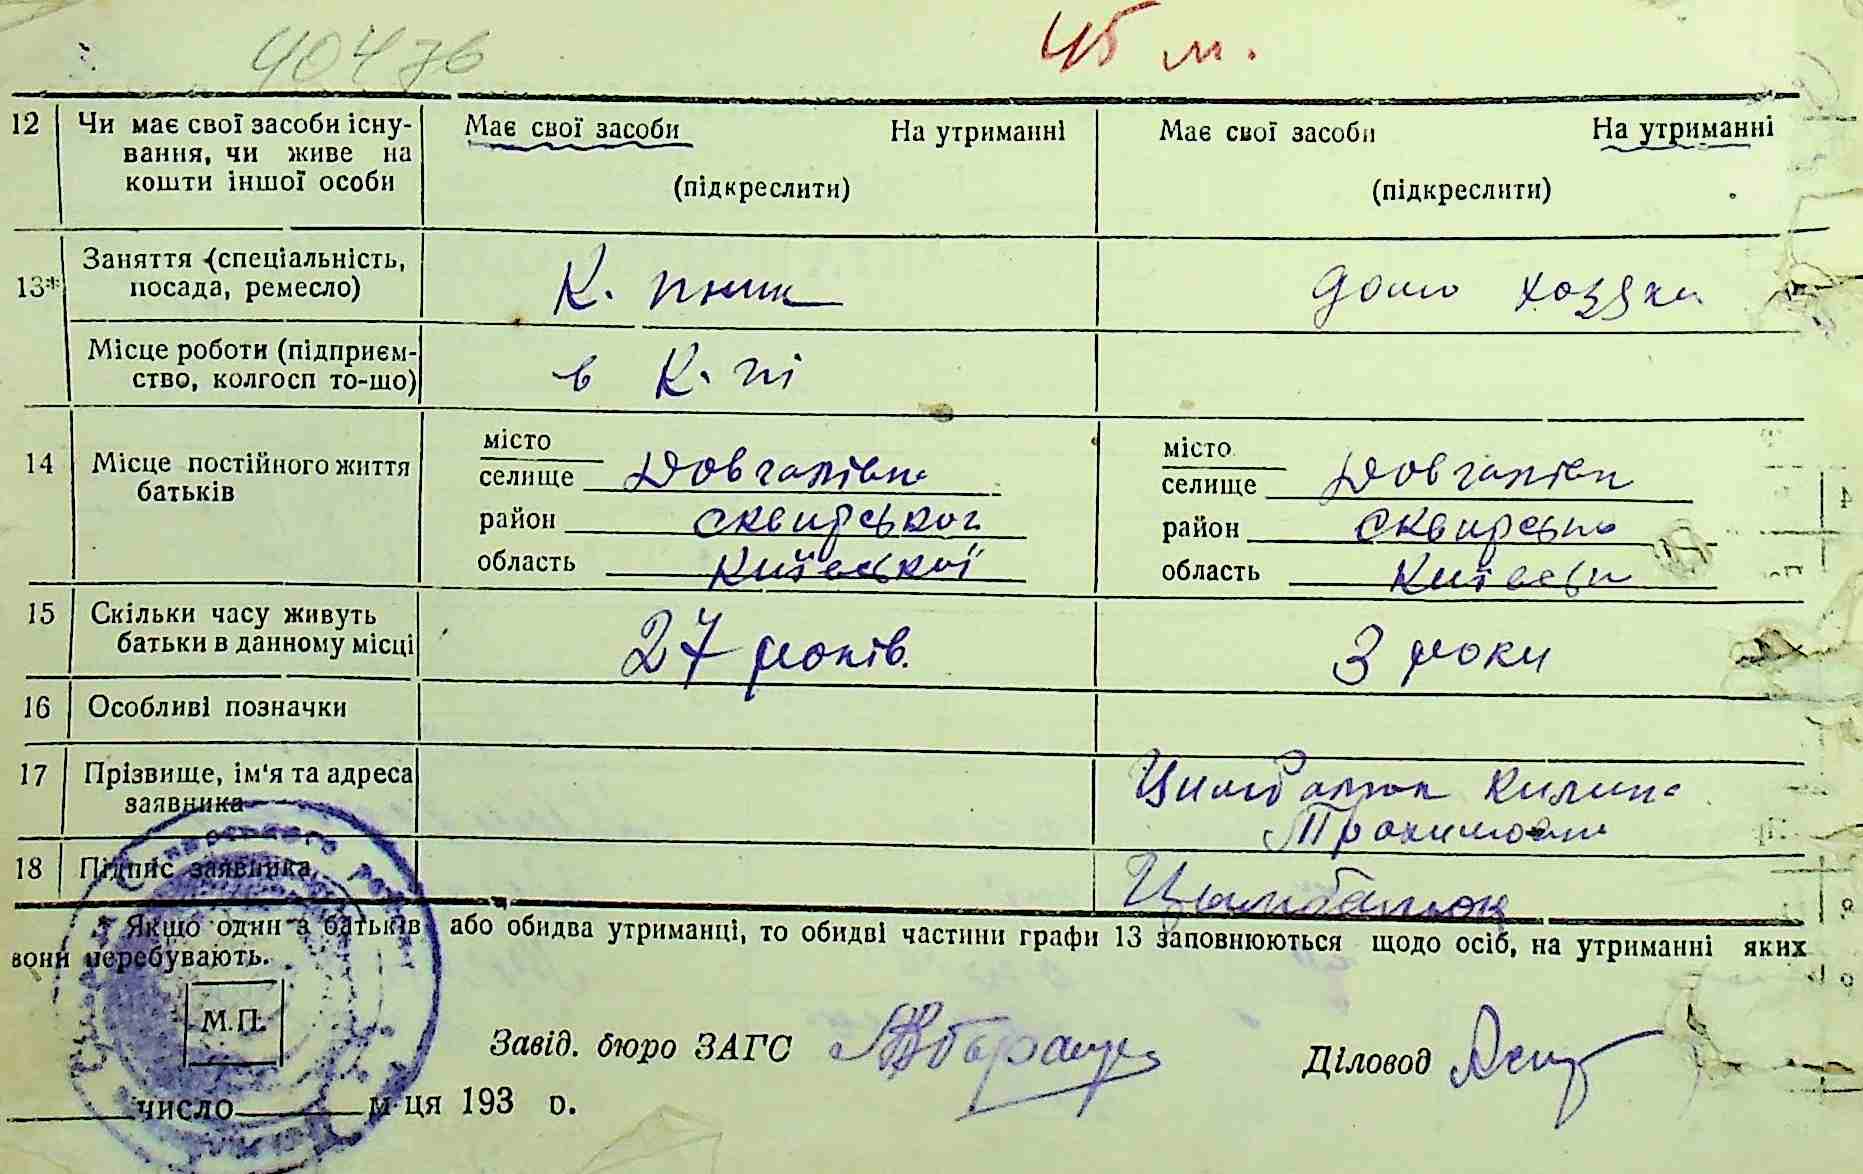 40476
45 м.
12 Чи має свої засоби існу- Має свої засоби На утриманні Має свої засоби На утриманні
вання, чи живе на
кошти іншої особи (підкреслити) (підкреслити)
Заняття (спеціальність,
13* посада, ремесло) К. пник домо хозяка
Місце роботи (підприєм-
ство, колгосп то-що) в К. пі
місто місто
14 Місце постійного життя селище Довгалівка селище Довгалівк
батьків район Сквирського район Сквирсько
область Київської область Київськ
15 Скільки часу живуть 27 років. 3 роки
батьки в данному місці
16 Особливі позначки
17 Прізвище, ім'я та адреса Цимбалюк Килина
заявника Трохимовна
18 Підпис заявника Цымбалюк
Якщо один з батьків або обидва утриманці, то обидві частини графи 13 заповнюються щодо осіб, на утриманні яких
вони перебувають.
М.П.
Завід. бюро ЗАГС Діловод
число м-ця 193 р.